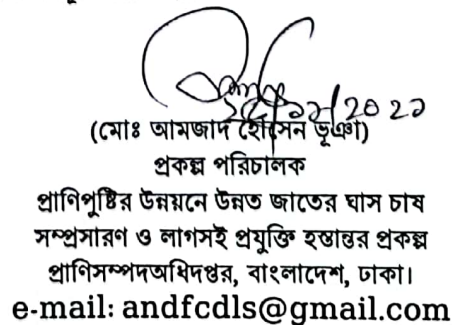 (মোঃ আমজাদ হোসেন ভূঞা)
প্রকল্প পরিচালক
প্রাণিপুষ্টির উন্নয়নে উন্নত জাতের ঘাস চাষ
সম্প্রসারণ ও লাগসই প্রযুক্তি হস্তান্তর প্রকল্প
প্রাণিসম্পদঅধিদপ্তর, বাংলাদেশ, ঢাকা।
e-mail: andfcdls@gmail.com